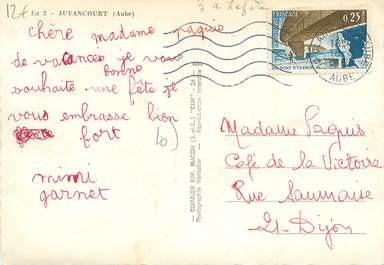 12€ La 2 - JUVANCOURT (Aube)
chère madame paquis
de vacances je vous
bonne
souhaite une fête je
vous embrasse bien
fort
mimi
garnet
COMBIER IMP. MACON (S.-et-L.) "CIM"
Photographie Véritable - Reproduction Interdite
FRANÇAISE
0,25
PONT D'OLERON
AUBE
Madame Paquis
Café de la Victoire
Rue Saumaise
21. Dijon